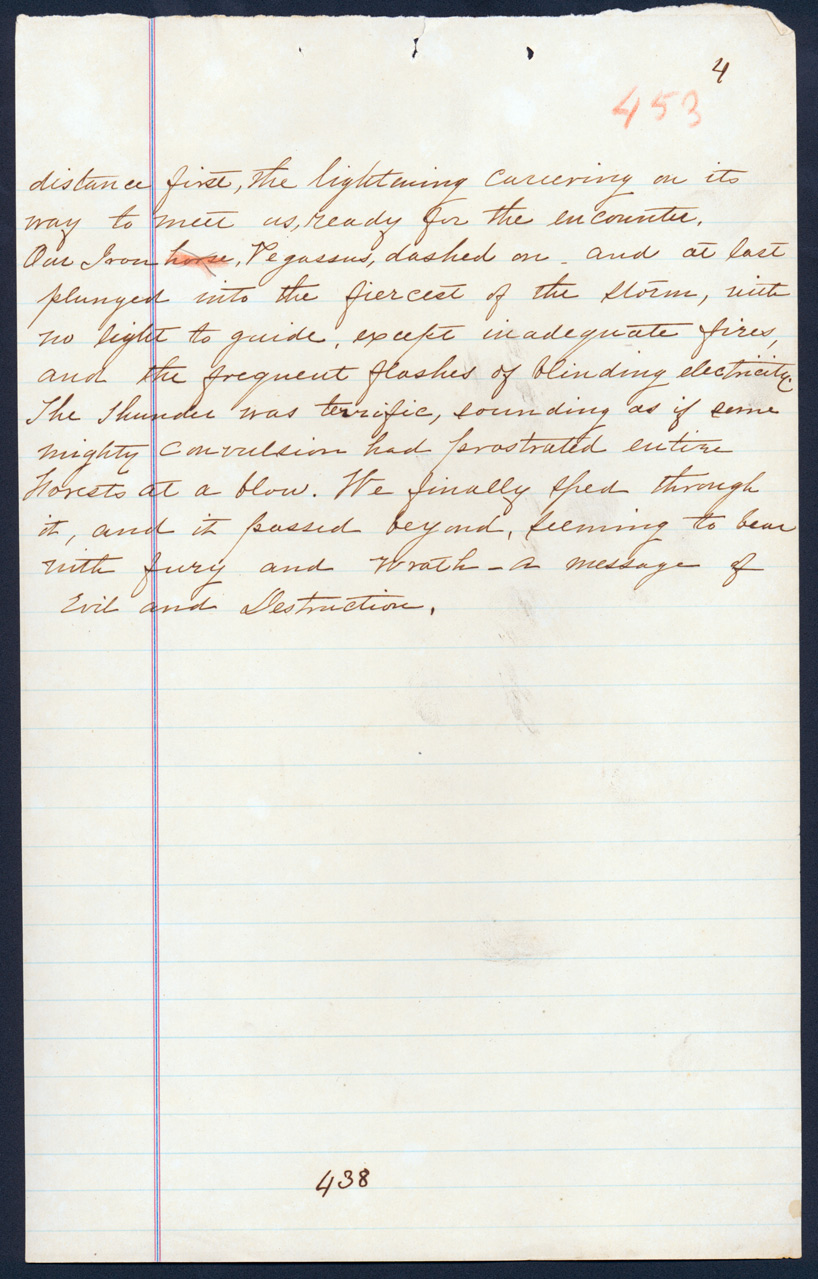 4
453
distance first, the lightning careering on its
way to meet us, ready for the encounter.
Our Iron horse, Pegassus, dashed on - and at last
plunged into the fiercest of the storm, with
no light to guide, except inadequate fires,
and the frequent flashes of blinding electricity.
The Thunder was terrific, sounding as if some
mighty convulsion had prostrated entire
Forests at a blow. We finally sped through
it, and it passed beyond, seeming to bear
with fury and wrath - a message of
Evil and Destruction.
438